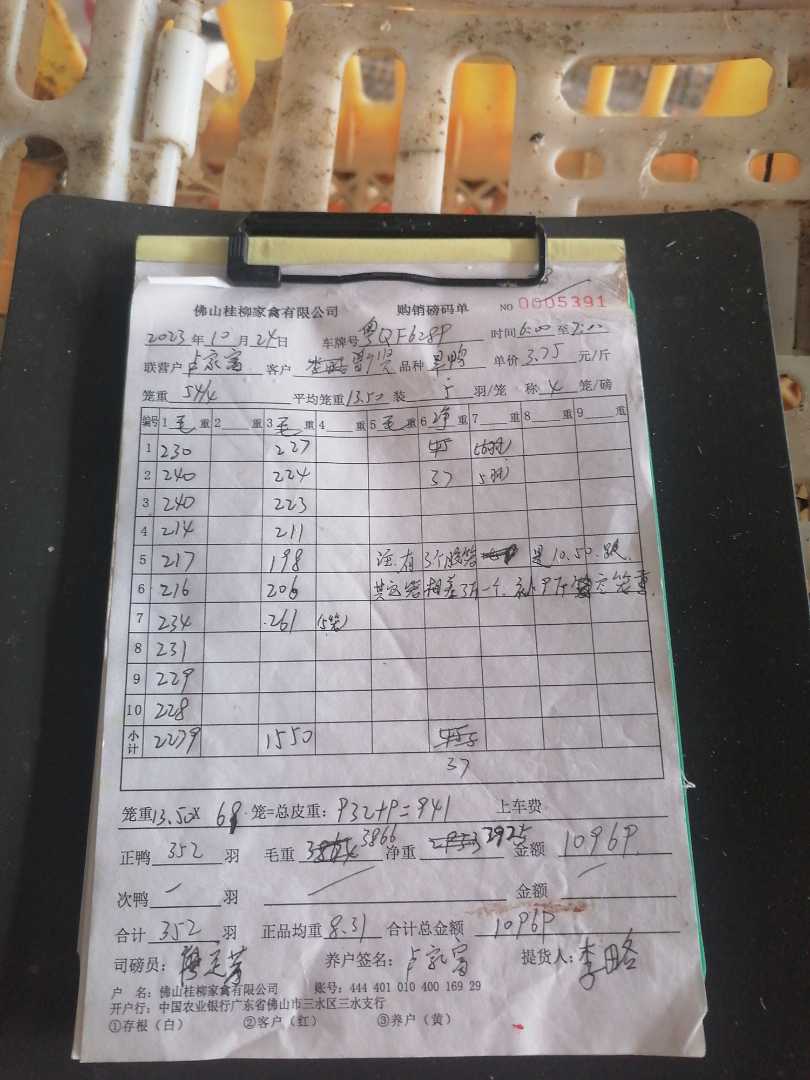 佛山桂柳家禽有限公司 购销磅码单 NO 0005391
2023年10月24日 车牌号粤QF628P 时间6:00至
联营户卢家富 客户 品种 单价3.75元/斤
笼重54/4 平均笼重13.50装5羽/笼 称4笼/磅
编号 1毛重 2重 3毛重 4重 5毛重 6净重 7重 8重 9重
1 230 227
2 240 224 37 5羽
3 240 223
4 214 211
5 217 198 注:有3个 是10.50
6 216 206 其它笼相差3斤一个
7 234 261 (5笼)
8 231
9 229
10 228
小计 2279 1550
37
笼重13.50X 68笼=总皮重:932+9=941 上车费
正鸭352羽 毛重3866净重2925金额10969
次鸭/羽 / 金额/
合计352羽 正品均重8.31合计总金额10969
司磅员: 养户签名:卢家富 提货人:李略
户 名:佛山桂柳家禽有限公司 账号:444 401 010 400 169 29
开户行:中国农业银行广东省佛山市三水区三水支行
①存根(白) ②客户(红) ③养户(黄)